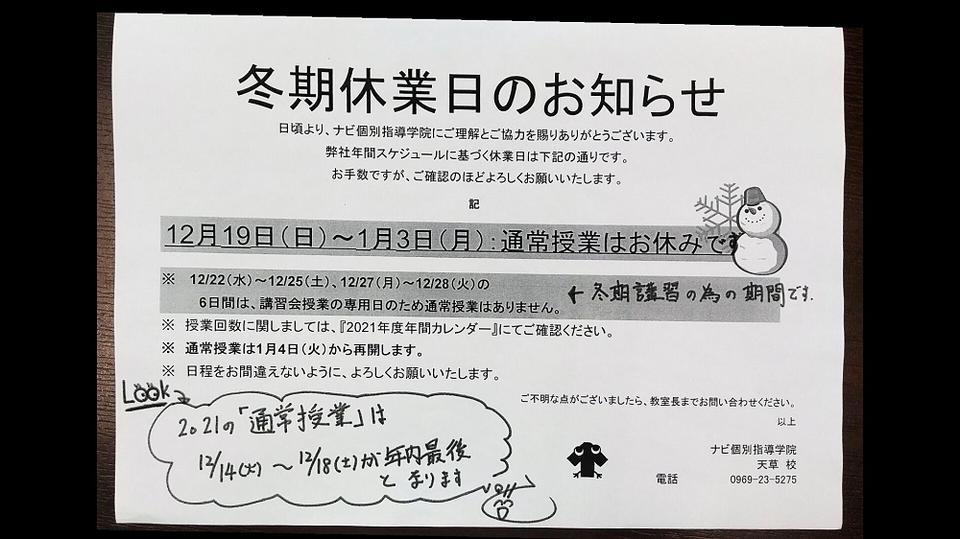 冬期休業日のお知らせ
日頃より、ナビ個別指導学院にご理解とご協力を賜りありがとうございます。
弊社年間スケジュールに基づく休業日は下記の通りです。
お手数ですが、ご確認のほどよろしくお願いいたします。
記
12月19日(日)～1月3日(月):通常授業はお休みです
※ 12/22(水)～12/25(土)、12/27(月)～12/28(火)の
6日間は、講習会授業の専用日のため通常授業はありません。
←冬期講習の為の期間です.
※ 授業回数に関しましては、『2021年度年間カレンダー』にてご確認ください。
※ 通常授業は1月4日(火)から再開します。
※ 日程をお間違えないように、よろしくお願いいたします。
Look
2021の「通常授業」は
12/14(火)～12/18(土)が年内最後
となります
ご不明な点がございましたら、教室長までお問い合わせください。
以上
ナビ個別指導学院
天草 校
電話 0969-23-5275